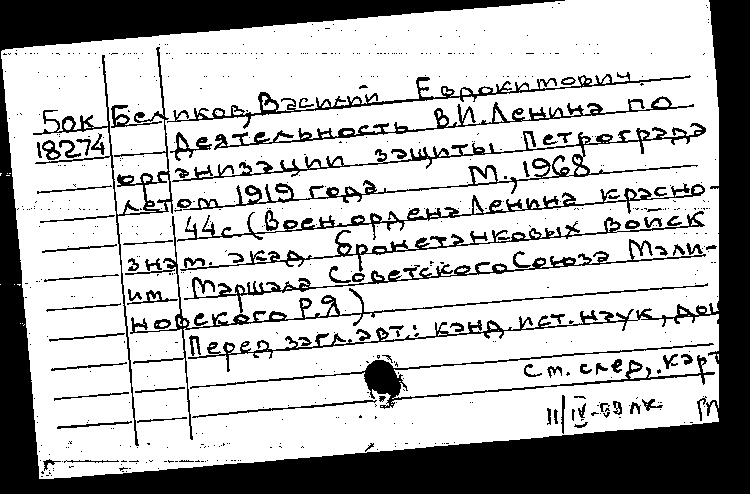 Бок Беликов, Василий Евдокимович.
18274 Деятельность В.И. Ленина по
организации защиты Петрограда
летом 1919 года. М., 1968.
44с. (Воен. ордена Ленина красно-
знам. акад. бронетанковых войск
им. Маршала Советского Союза Мали-
новского Р.Я).
Перед загл. авт.: канд. ист. наук, доц
См. след. карт